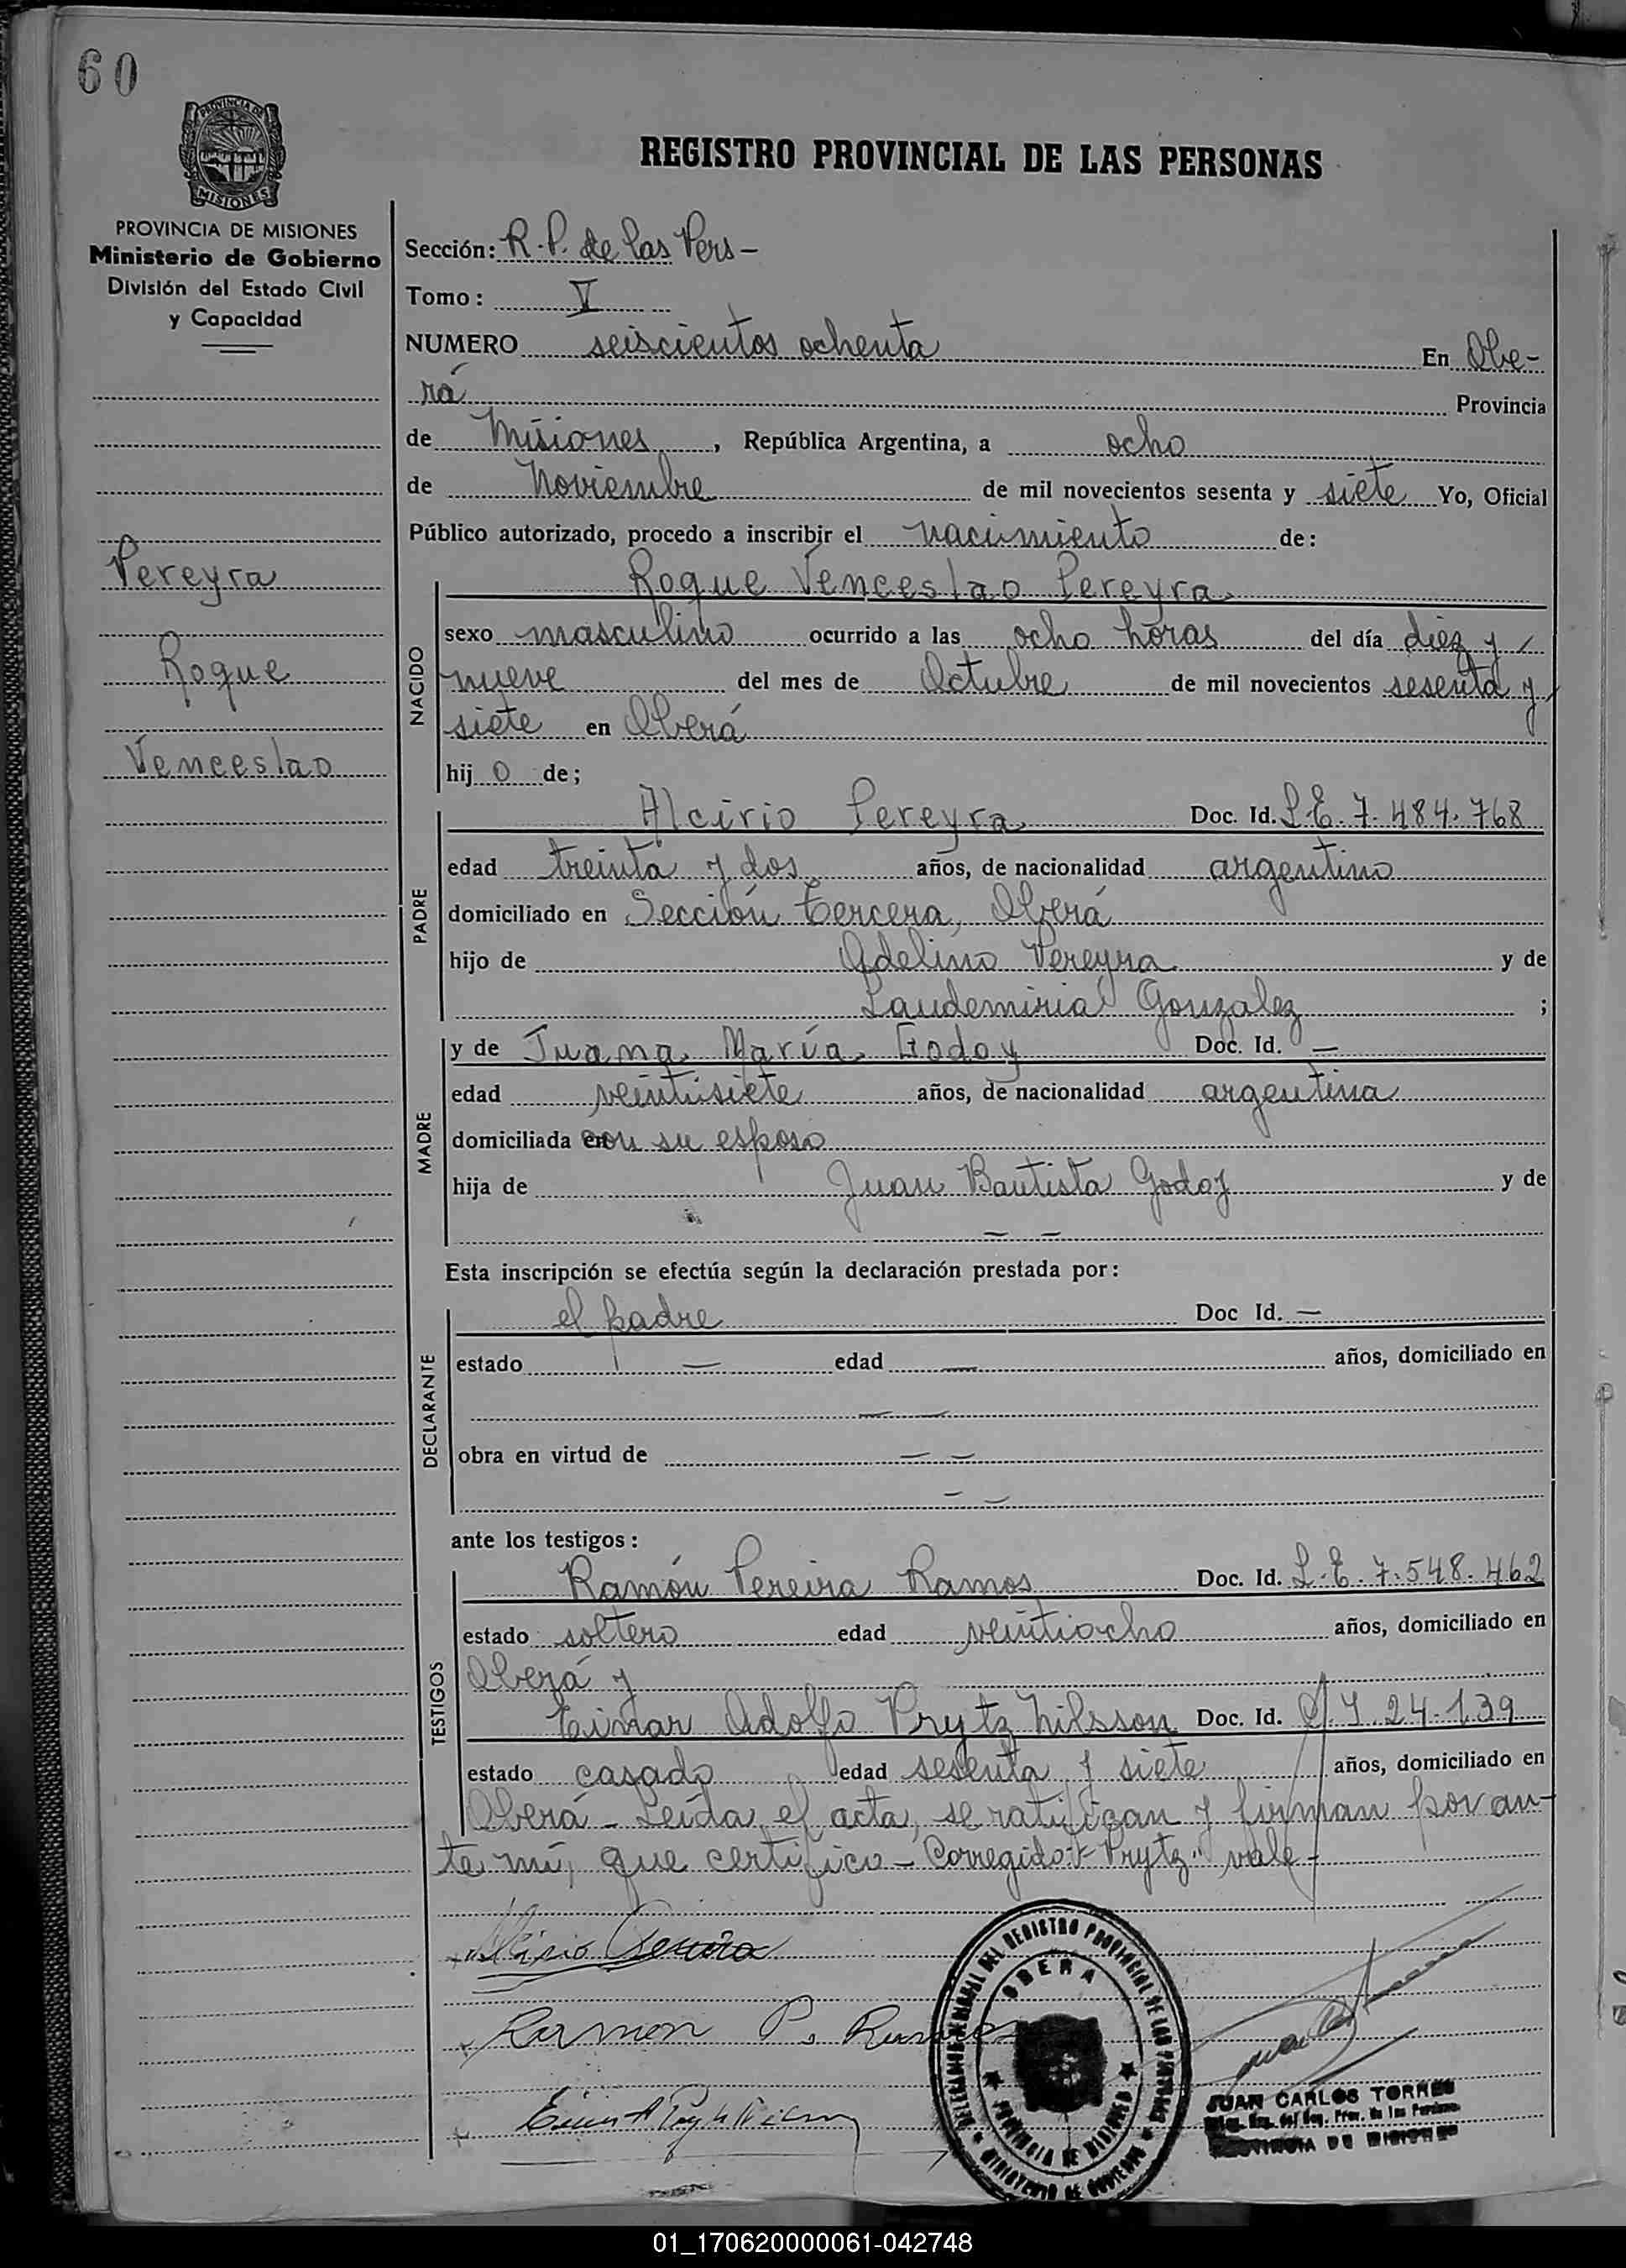 60
PROVINCIA DE
MISIONES
PROVINCIA DE MISIONES
Ministerio de Gobierno
División del Estado Civil
y Capacidad
Pereyra
Roque
Venceslao
REGISTRO PROVINCIAL DE LAS PERSONAS
Sección: R.P. de las Pers-
Tomo: V
NUMERO seiscientos ochenta En Obe-
rá Provincia
de Misiones, República Argentina, a ocho
de Noviembre de mil novecientos sesenta y siete Yo, Oficial
Público autorizado, procedo a inscribir el nacimiento de:
Roque Venceslao Pereyra
NACIDO
sexo masculino ocurrido a las ocho horas del día diez y
nueve del mes de Octubre de mil novecientos sesenta y
siete en Oberá
hijo de;
PADRE
Alcirio Pereyra Doc. Id. L.E. 7.484.768
edad treinta y dos años, de nacionalidad argentino
domiciliado en Sección tercera, Oberá
hijo de Adelino Pereyra y de
Laudemiria Gonzalez ;
MADRE
y de Juana María Godoy Doc. Id. —
edad veintisiete años, de nacionalidad argentina
domiciliada en con su esposo
hija de Juan Bautista Godoy y de
— —
Esta inscripción se efectúa según la declaración prestada por:
DECLARANTE
el padre Doc Id. —
estado — edad — años, domiciliado en
— —
obra en virtud de — —
— —
ante los testigos:
TESTIGOS
Ramón Pereira Ramos Doc. Id. L.E. 7.548.462
estado soltero edad veintiocho años, domiciliado en
Oberá y
Einar Adolfo Prytz Nilsson Doc. Id. C.I. 24.139
estado casado edad sesenta y siete años, domiciliado en
Oberá - Leída el acta, se ratifican y firman por an-
te mí, que certifico - Corregido: "Prytz" vale -
Ramon P. Ramos
DEL REGISTRO PROVINCIAL DE LAS PERSONAS
OBERA
PROVINCIA DE MISIONES
MINISTERIO DE GOBIERNO
JUAN CARLOS TORRES
PROVINCIA DE MISIONES
01_170620000061-042748